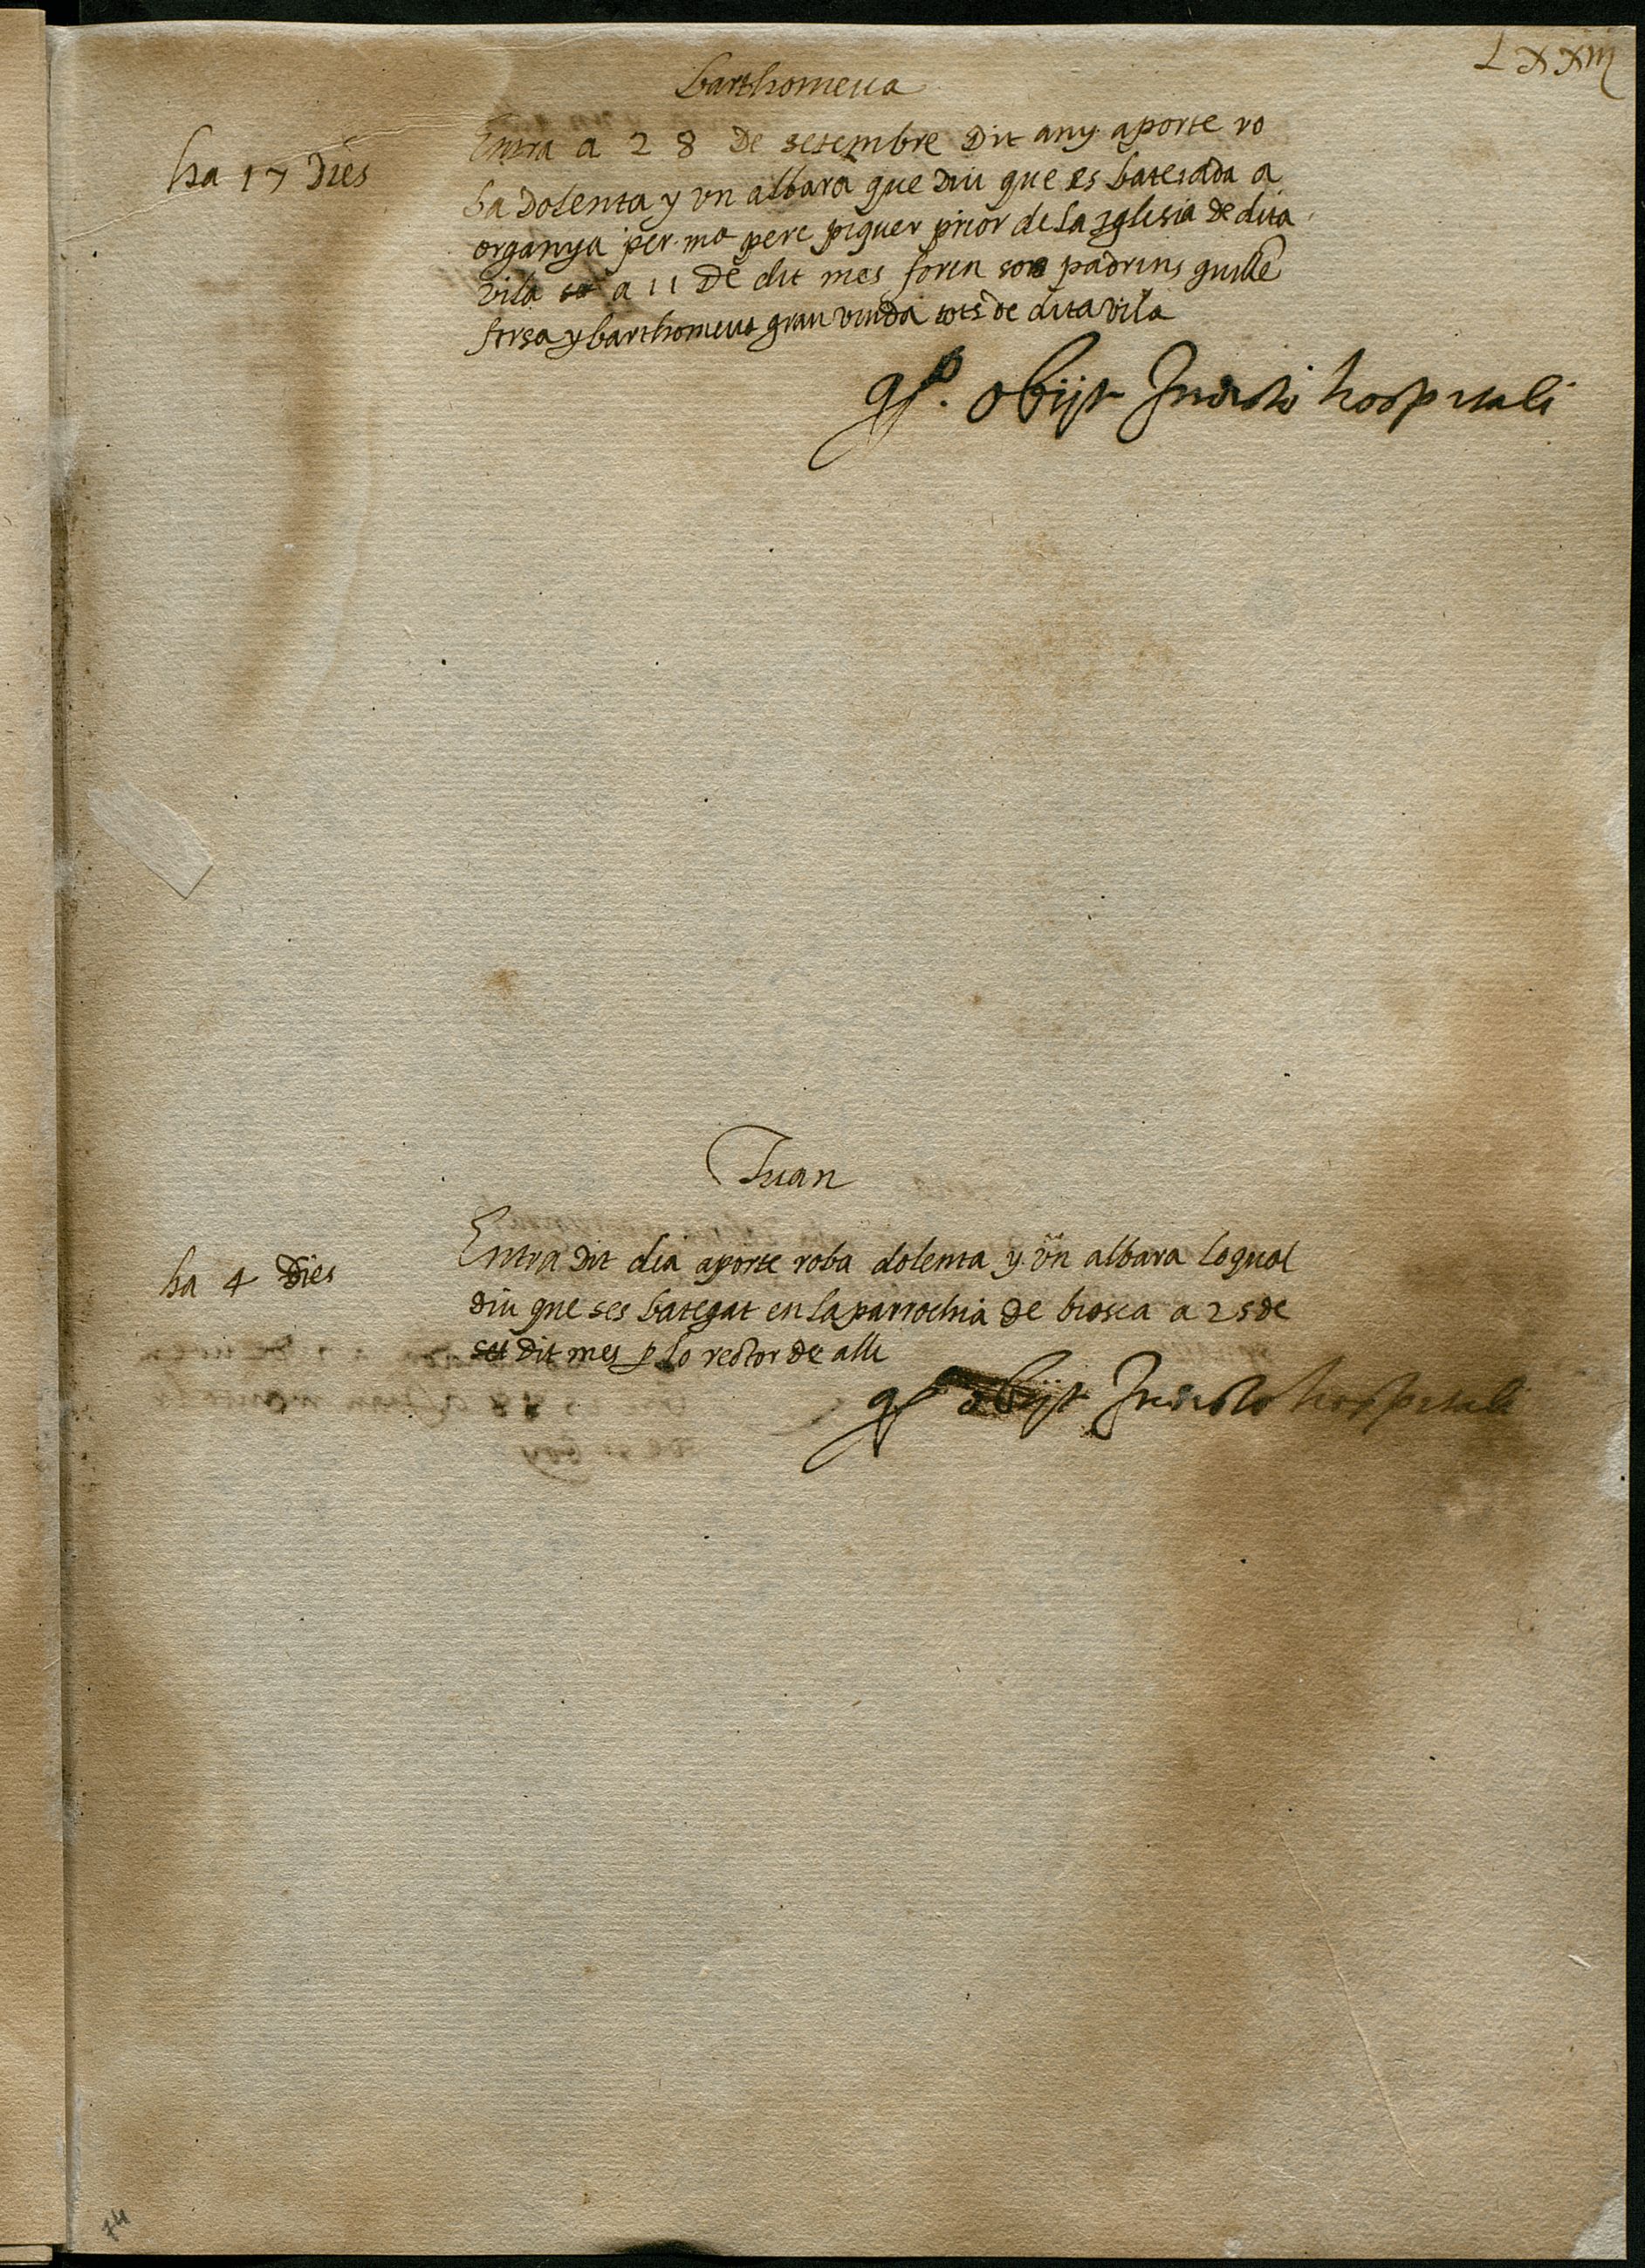 LXXiiij
barthomeua
ha 17 Dies
Entra a 28 de setembre dit any aporte ro
ba dolenta y vn albara que diu que es batejada a
organya per mo pere piquer prior de la Iglesia de dita
vila a 11 de dit mes foren sos padrins guillē
forsa y barthomeua grau viuda tots de dita vila
obijt In dicto hospitali
Juan
ha 4 Dies
Entra dit dia aporte roba dolenta y vn albara loqual
diu que ses bategat en la parrochia de biosca a 25 de
dit mes p lo rector de alli
obijt In dicto hospitali
74